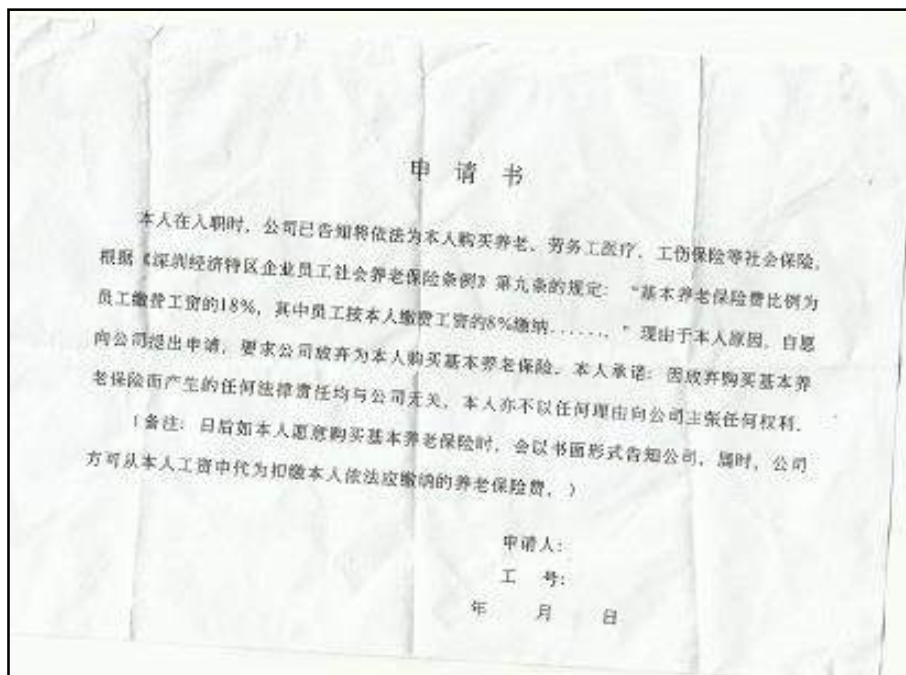 申 请 书
本人在入职时，公司已告知将依法为本人购买养老、劳务工医疗、工伤保险等社会保险，
根据《深圳经济特区企业员工社会养老保险条例》第九条的规定：“基本养老保险费比例为
员工缴费工资的18%，其中员工按本人缴费工资的8%缴纳......，”现由于本人原因，自愿
向公司提出申请，要求公司放弃为本人购买基本养老保险。本人承诺：因放弃购买基本养
老保险而产生的任何法律责任均与公司无关，本人亦不以任何理由向公司主张任何权利。
（备注：日后如本人愿意购买基本养老保险时，会以书面形式告知公司，届时，公司
方可从本人工资中代为扣缴本人依法应缴纳的养老保险费。）
申请人：
工 号：
年 月 日